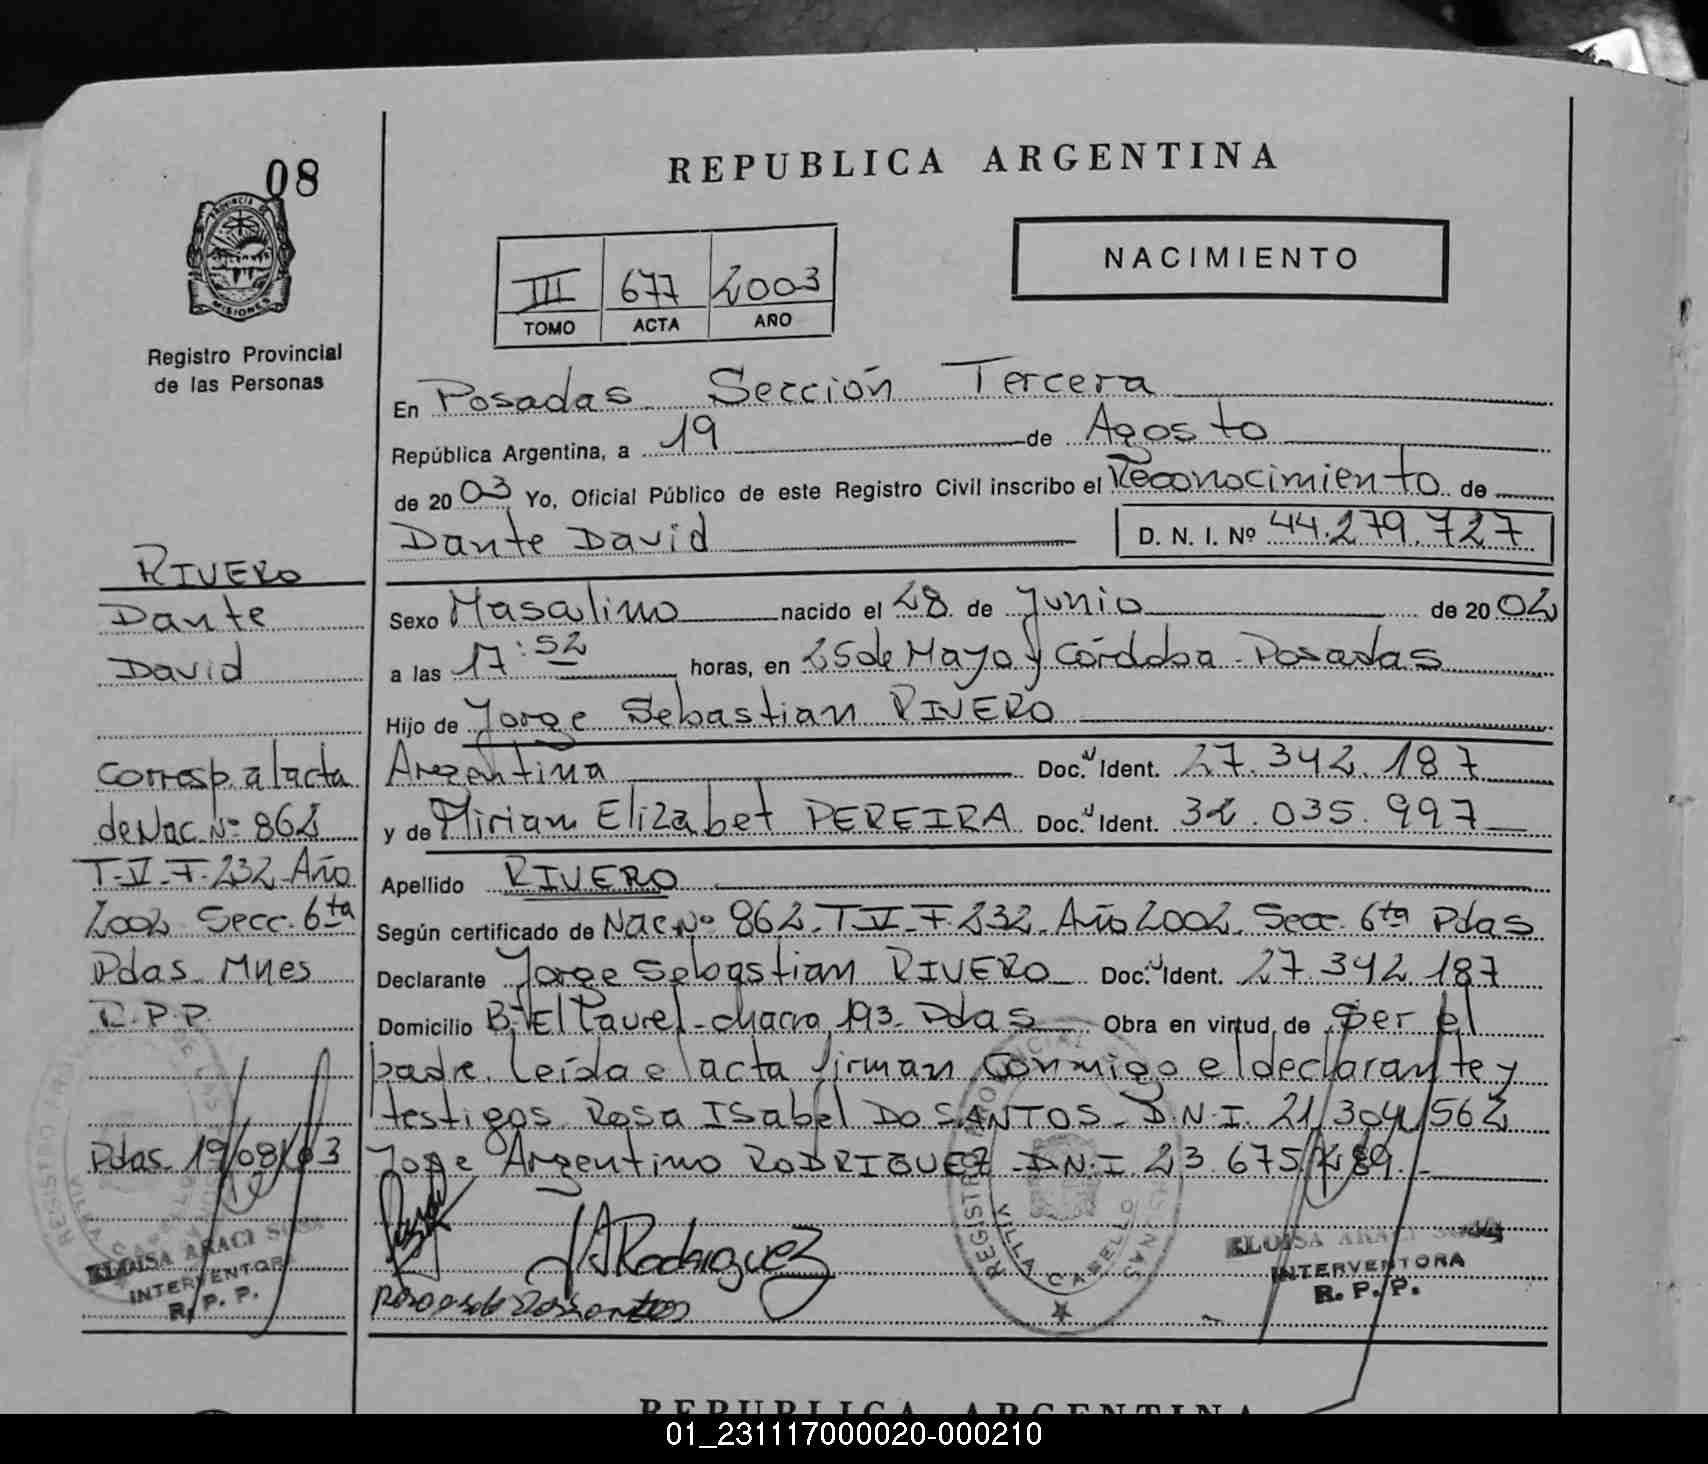 08
PROVINCIA DE
MISIONES
Registro Provincial
de las Personas
REPUBLICA ARGENTINA
NACIMIENTO
III 677 2003
TOMO ACTA AÑO
En Posadas Sección Tercera
República Argentina, a 19 de Agosto
de 2003 Yo, Oficial Público de este Registro Civil inscribo el Reconocimiento de
Dante David D. N. I. Nº 44.279.727
Sexo Masculino nacido el 28 de Junio de 2002
a las 17:52 horas, en 25 de Mayo y Córdoba - Posadas
Hijo de Jorge Sebastian RIVERO
Argentina Doc. Ident. 27.342.187
y de Mirian Elizabet PEREIRA Doc. Ident. 32.035.997
Apellido RIVERO
Según certificado de Nac Nº 862 - T V - F. 232 - Año 2002 - Secc. 6ta Pdas
Declarante Jorge Sebastian RIVERO Doc. Ident. 27.342.187
Domicilio Bº El Laurel - chacra 193 - Pdas Obra en virtud de Ser el
padre. Leída el acta firman conmigo el declarante y
testigos Rosa Isabel DO SANTOS - D.N.I. 21.304.562
Jose Argentino RODRIGUEZ - D.N.I 23.675.489
JARodriguez
ELOISA ARACI SOSA
INTERVENTORA
R. P. P.
REGISTRO PROVINCIAL
VILLA CABELLO
RIVERO
Dante
David
Corresp. al acta
de Nac. Nº 862
T-V-F-232-Año
2002 Secc. 6ta
Pdas Mnes
R.P.P.
Pdas 19/08/03
ELOISA ARACI SOSA
INTERVENTORA
R. P. P.
REPUBLICA ARGENTINA
01_231117000020-000210